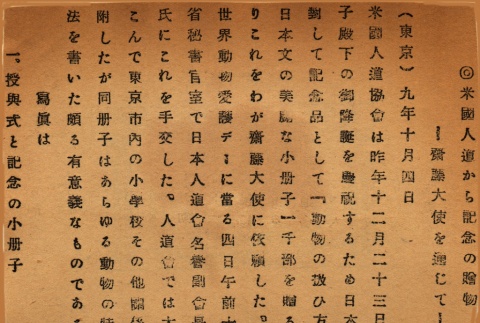 ◎米國人道から記念の贈物
ー齋藤大使を通じてー
(東京)九年十月四日
米國人道協會は昨年十二月二十三日
子殿下の御降誕を慶祝するため日本
對して記念品として『動物の扱ひ方
日本文の美麗な小册子一千部を贈る
りこれをわが齋藤大使に依頼した。
世界動物愛護デーに當る四日午前十
省秘書官室で日本人道會名譽副會長
氏にこれを手交した。人道會では本
こんで東京市內の小學校その他關係
附したが同册子はあらゆる動物の
法を書いた頗る有意義なものである
寫眞は
一、授與式と記念の小册子